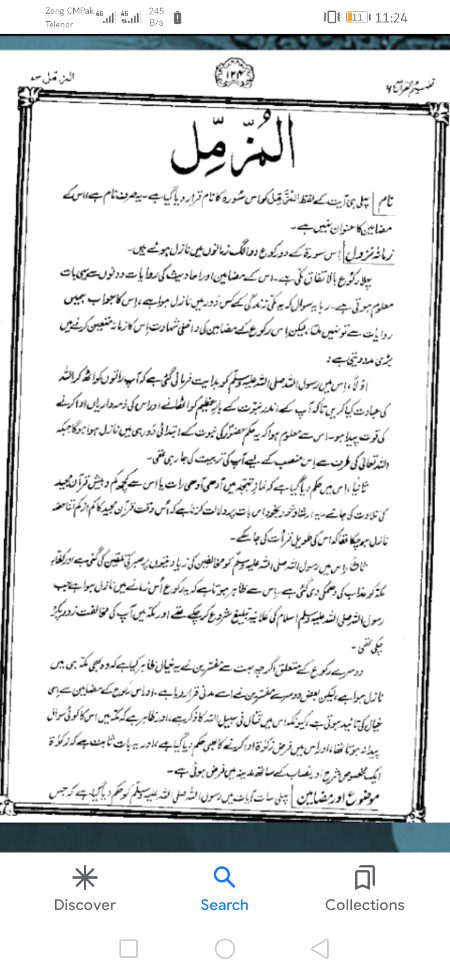 Zong CMPak
Telenor
4G 4G 245 B/s
11 11:24
المزمل ۷۳
۱۲۴
تفہیم القرآن ۶
المُزَّمِّل
نام پہلی ہی آیت کے لفظ المُزَّمِّل کو اس سورہ کا نام قرار دیا گیا ہے۔ یہ صرف نام ہے، اس کے
مضامین کا عنوان نہیں ہے۔
زمانۂ نزول اِس سورۃ کے دو رکوع دو الگ زمانوں میں نازل ہوئے ہیں۔
پہلا رکوع بالاتفاق مکی ہے۔ اس کے مضامین اور احادیث کی روایات دونوں سے یہی بات
معلوم ہوتی ہے۔ رہا یہ سوال کہ یہ مکی زندگی کے کس دَور میں نازل ہوا ہے، اِس کا جواب ہمیں
روایات سے تو نہیں ملتا، لیکن اِس رکوع کے مضامین کی داخلی شہادت اِس کا زمانہ متعین کرنے میں
بڑی مدد دیتی ہے:
اوّلاً، اِس میں رسول اللہ صلی اللہ علیہ وسلم کو ہدایت فرمائی گئی ہے کہ آپ راتوں کو اٹھ کر اللہ
کی عبادت کیا کریں تاکہ آپ کے اندر نبوت کے بارِ عظیم کو اٹھانے اور اس کی ذمہ داریاں ادا کرنے
کی قوت پیدا ہو۔ اس سے معلوم ہوا کہ یہ حکم حضورؐ کی نبوت کے ابتدائی دَور ہی میں نازل ہوا ہوگا جبکہ
اللہ تعالیٰ کی طرف سے اِس منصب کے لیے آپ کی تربیت کی جا رہی تھی۔
ثانیاً، اِس میں حکم دیا گیا ہے کہ نمازِ تہجد میں آدھی آدھی رات یا اس سے کچھ کم و بیش قرآن مجید
کی تلاوت کی جائے۔ یہ ارشاد خود بخود اِس بات پر دلالت کرتا ہے کہ اُس وقت قرآن مجید کا کم از کم اتنا حصہ
نازل ہو چکا تھا کہ اس کی طویل قرأت کی جا سکے۔
ثالثاً، اِس میں رسول اللہ صلی اللہ علیہ وسلم کو مخالفین کی زیادتیوں پر صبر کی تلقین کی گئی ہے اور کفارِ
مکہ کو عذاب کی دھمکی دی گئی ہے۔ اِس سے ظاہر ہوتا ہے کہ یہ رکوع اُس زمانے میں نازل ہوا ہے جب
رسول اللہ صلی اللہ علیہ وسلم اسلام کی علانیہ تبلیغ شروع کر چکے تھے اور مکہ میں آپ کی مخالفت زور پکڑ
چکی تھی۔
دوسرے رکوع کے متعلق اگرچہ بہت سے مفسرین نے یہ خیال ظاہر کیا ہے کہ وہ بھی مکہ ہی میں
نازل ہوا ہے، لیکن بعض دوسرے مفسرین نے اسے مدنی قرار دیا ہے، اور اس رکوع کے مضامین سے اِسی
خیال کی تائید ہوتی ہے، کیونکہ اس میں قتال فی سبیل اللہ کا ذکر ہے، اور ظاہر ہے کہ مکہ میں اس کا کوئی سوال
پیدا نہ ہوتا تھا، اور اس میں فرض زکوٰۃ ادا کرنے کا بھی حکم دیا گیا ہے، اور یہ بات ثابت ہے کہ زکوٰۃ
ایک مخصوص شرح اور نصاب کے ساتھ مدینہ میں فرض ہوئی ہے۔
موضوع اور مضامین پہلی سات آیات میں رسول اللہ صلی اللہ علیہ وسلم کو حکم دیا گیا ہے کہ جس
Discover
Search
Collections